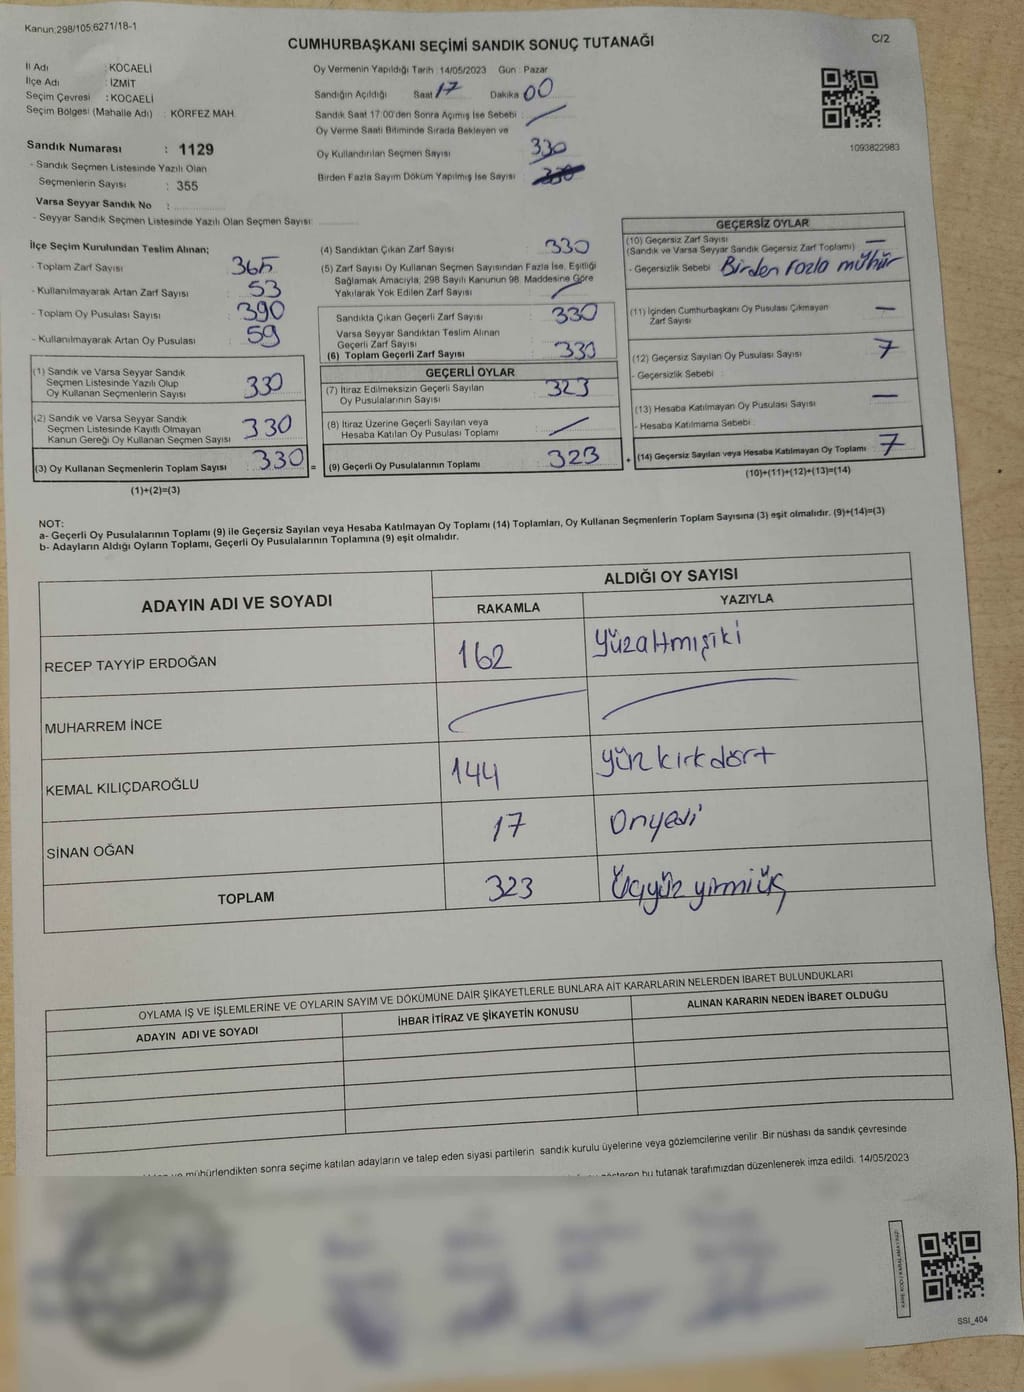 Kanun:298/105;6271/18-1
C/2
CUMHURBAŞKANI SEÇİMİ SANDIK SONUÇ TUTANAĞI
İl Adı : KOCAELİ
İlçe Adı : İZMİT
Seçim Çevresi : KOCAELİ
Seçim Bölgesi (Mahalle Adı) : KÖRFEZ MAH.
Sandık Numarası : 1129
- Sandık Seçmen Listesinde Yazılı Olan
Seçmenlerin Sayısı : 355
Varsa Seyyar Sandık No :
- Seyyar Sandık Seçmen Listesinde Yazılı Olan Seçmen Sayısı:
Oy Vermenin Yapıldığı Tarih : 14/05/2023 Gün : Pazar
Sandığın Açıldığı Saat 17 Dakika 00
Sandık Saat 17:00'den Sonra Açımış İse Sebebi :
Oy Verme Saati Bitiminde Sırada Bekleyen ve
Oy Kullandırılan Seçmen Sayısı 330
Birden Fazla Sayım Döküm Yapılmış İse Sayısı
1093822983
İlçe Seçim Kurulundan Teslim Alınan;
- Toplam Zarf Sayısı : 365
- Kullanılmayarak Artan Zarf Sayısı : 53
- Toplam Oy Pusulası Sayısı : 390
- Kullanılmayarak Artan Oy Pusulası : 59
(1) Sandık ve Varsa Seyyar Sandık
Seçmen Listesinde Yazılı Olup
Oy Kullanan Seçmenlerin Sayısı : 330
(2) Sandık ve Varsa Seyyar Sandık
Seçmen Listesinde Kayıtlı Olmayan
Kanun Gereği Oy Kullanan Seçmen Sayısı : 330
(3) Oy Kullanan Seçmenlerin Toplam Sayısı : 330 =
(1)+(2)=(3)
(4) Sandıktan Çıkan Zarf Sayısı : 330
(5) Zarf Sayısı Oy Kullanan Seçmen Sayısından Fazla İse, Eşitliği
Sağlamak Amacıyla, 298 Sayılı Kanunun 98. Maddesine Göre
Yakılarak Yok Edilen Zarf Sayısı :
Sandıkta Çıkan Geçerli Zarf Sayısı : 330
Varsa Seyyar Sandıktan Teslim Alınan
Geçerli Zarf Sayısı
(6) Toplam Geçerli Zarf Sayısı : 330
GEÇERLİ OYLAR
(7) İtiraz Edilmeksizin Geçerli Sayılan
Oy Pusulalarının Sayısı : 323
(8) İtiraz Üzerine Geçerli Sayılan veya
Hesaba Katılan Oy Pusulası Toplamı :
(9) Geçerli Oy Pusulalarının Toplamı : 323 +
GEÇERSİZ OYLAR
(10) Geçersiz Zarf Sayısı : —
(Sandık ve Varsa Seyyar Sandık Geçersiz Zarf Toplamı)
- Geçersizlik Sebebi : Birden Fazla mühür
(11) İçinden Cumhurbaşkanı Oy Pusulası Çıkmayan
Zarf Sayısı : —
(12) Geçersiz Sayılan Oy Pusulası Sayısı : 7
- Geçersizlik Sebebi :
(13) Hesaba Katılmayan Oy Pusulası Sayısı : —
- Hesaba Katılmama Sebebi :
(14) Geçersiz Sayılan veya Hesaba Katılmayan Oy Toplamı : 7
(10)+(11)+(12)+(13)=(14)
NOT:
a- Geçerli Oy Pusulalarının Toplamı (9) ile Geçersiz Sayılan veya Hesaba Katılmayan Oy Toplamı (14) Toplamları, Oy Kullanan Seçmenlerin Toplam Sayısına (3) eşit olmalıdır. (9)+(14)=(3)
b- Adayların Aldığı Oyların Toplamı, Geçerli Oy Pusulalarının Toplamına (9) eşit olmalıdır.
ADAYIN ADI VE SOYADI
ALDIĞI OY SAYISI
RAKAMLA YAZIYLA
RECEP TAYYİP ERDOĞAN 162 Yüzaltmışiki
MUHARREM İNCE
KEMAL KILIÇDAROĞLU 144 yüz kırk dört
SİNAN OĞAN 17 Onyedi
TOPLAM 323 Üçyüz yirmi üç
OYLAMA İŞ VE İŞLEMLERİNE VE OYLARIN SAYIM VE DÖKÜMÜNE DAİR ŞİKAYETLERLE BUNLARA AİT KARARLARIN NELERDEN İBARET BULUNDUKLARI
ADAYIN ADI VE SOYADI İHBAR İTİRAZ VE ŞİKAYETİN KONUSU ALINAN KARARIN NEDEN İBARET OLDUĞU
mühürlendikten sonra seçime katılan adayların ve talep eden siyasi partilerin sandık kurulu üyelerine veya gözlemcilerine verilir. Bir nüshası da sandık çevresinde
bu tutanak tarafımızdan düzenlenerek imza edildi. 14/05/2023
SSI_404